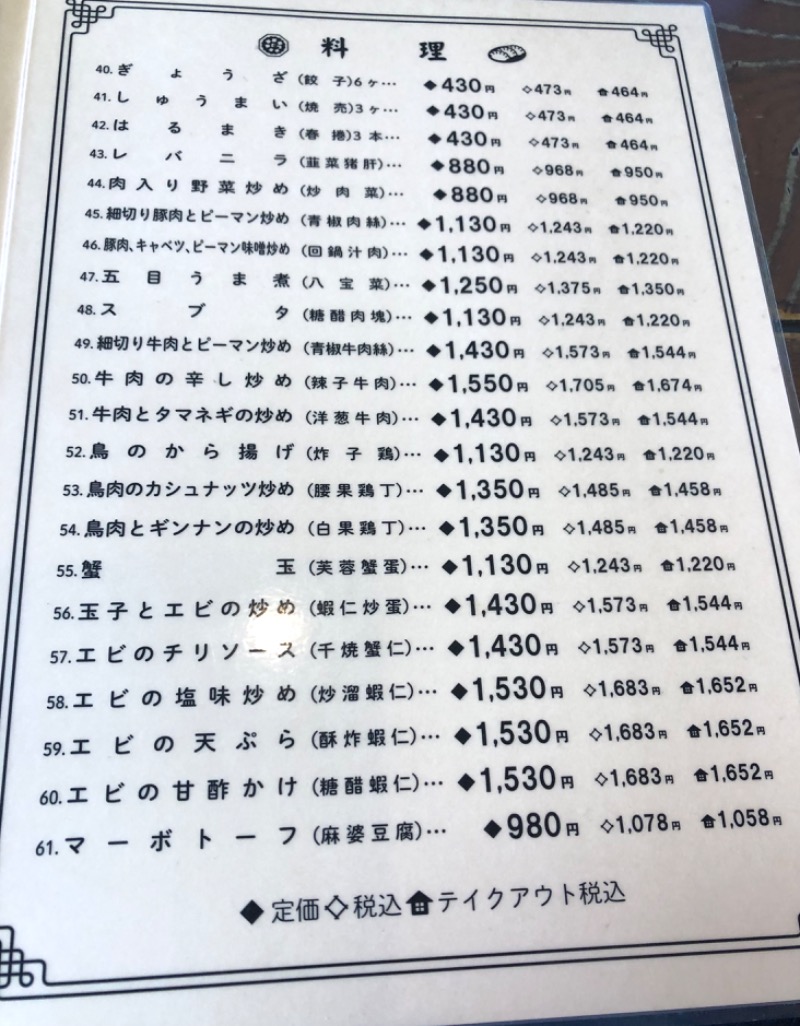 料理
40. ぎょうざ (餃子)6ヶ… ◆430円 ◇473円 464円
41. しゅうまい (焼売)3ヶ… ◆430円 ◇473円 464円
42. はるまき (春捲)3本… ◆430円 ◇473円 464円
43. レバニラ (韮菜猪肝)… ◆880円 ◇968円 950円
44. 肉入り野菜炒め (炒肉菜)… ◆880円 ◇968円 950円
45. 細切り豚肉とピーマン炒め (青椒肉絲)… ◆1,130円 ◇1,243円 1,220円
46. 豚肉、キャベツ、ピーマン味噌炒め (回鍋汁肉)… ◆1,130円 ◇1,243円 1,220円
47. 五目うま煮 (八宝菜)… ◆1,250円 ◇1,375円 1,350円
48. スブタ (糖醋肉塊)… ◆1,130円 ◇1,243円 1,220円
49. 細切り牛肉とピーマン炒め (青椒牛肉絲)… ◆1,430円 ◇1,573円 1,544円
50. 牛肉の辛し炒め (辣子牛肉)… ◆1,550円 ◇1,705円 1,674円
51. 牛肉とタマネギの炒め (洋葱牛肉)… ◆1,430円 ◇1,573円 1,544円
52. 鳥のから揚げ (炸子鶏)… ◆1,130円 ◇1,243円 1,220円
53. 鳥肉のカシュナッツ炒め (腰果鶏丁)… ◆1,350円 ◇1,485円 1,458円
54. 鳥肉とギンナンの炒め (白果鶏丁)… ◆1,350円 ◇1,485円 1,458円
55. 蟹玉 (芙蓉蟹蛋)… ◆1,130円 ◇1,243円 1,220円
56. 玉子とエビの炒め (蝦仁炒蛋)… ◆1,430円 ◇1,573円 1,544円
57. エビのチリソース (干焼蟹仁)… ◆1,430円 ◇1,573円 1,544円
58. エビの塩味炒め (炒溜蝦仁)… ◆1,530円 ◇1,683円 1,652円
59. エビの天ぷら (酥炸蝦仁)… ◆1,530円 ◇1,683円 1,652円
60. エビの甘酢かけ (糖醋蝦仁)… ◆1,530円 ◇1,683円 1,652円
61. マーボトーフ (麻婆豆腐)… ◆980円 ◇1,078円 1,058円
◆定価◇税込 テイクアウト税込